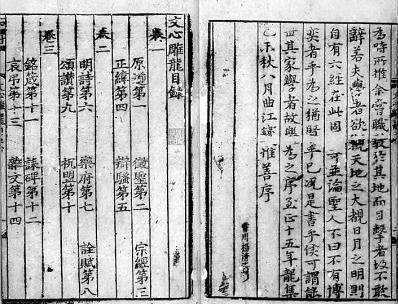 為時所推余嘗職教於其地而目擊者故不敢
辭若夫學者欲觀天地之大觀日月之明則
自有六經在此固 可並論聖人不曰不有博
奕者乎為之猶賢乎已況是書乎侯可謂能
世其家學者故樂為之序至正十五年龍集
乙未秋八月曲江錢惟善序
文心雕龍目錄
卷一
原道第一 徵聖第二 宗經第三
正緯第四 辯騷第五
卷二
明詩第六 樂府第七 詮賦第八
頌讚第九 祝盟第十
卷三
銘箴第十一 誄碑第十二
哀弔第十三 雜文第十四